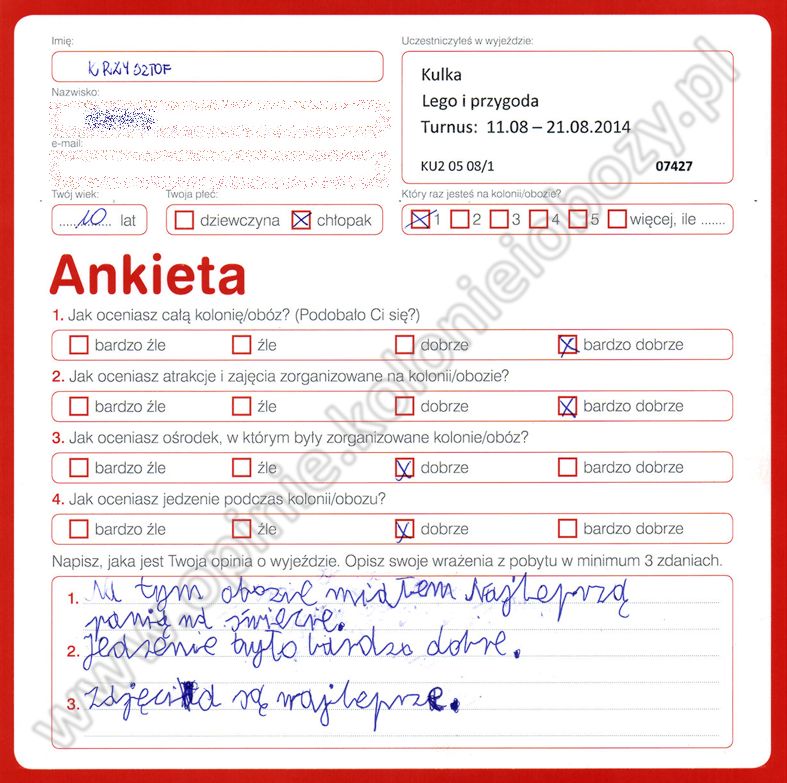 Imię:
KRZYSZTOF
Nazwisko:
e-mail:
Uczestniczyłeś w wyjeździe:
Kulka
Lego i przygoda
Turnus: 11.08 – 21.08.2014
KU2 05 08/1 07427
Twój wiek:
.....10... lat
Twoja płeć:
dziewczyna chłopak
Który raz jesteś na kolonii/obozie?
1 2 3 4 5 więcej, ile .......
Ankieta
1. Jak oceniasz całą kolonię/obóz? (Podobało Ci się?)
bardzo źle źle dobrze bardzo dobrze
2. Jak oceniasz atrakcje i zajęcia zorganizowane na kolonii/obozie?
bardzo źle źle dobrze bardzo dobrze
3. Jak oceniasz ośrodek, w którym były zorganizowane kolonie/obóz?
bardzo źle źle dobrze bardzo dobrze
4. Jak oceniasz jedzenie podczas kolonii/obozu?
bardzo źle źle dobrze bardzo dobrze
Napisz, jaka jest Twoja opinia o wyjeździe. Opisz swoje wrażenia z pobytu w minimum 3 zdaniach.
1. Na tym obozie miałem Najleprzą
panią na świecie.
2. Jedzenie było bardzo dobre.
3. Zdjęcia są najleprze.
www.opinie.kolonieiobozy.pl